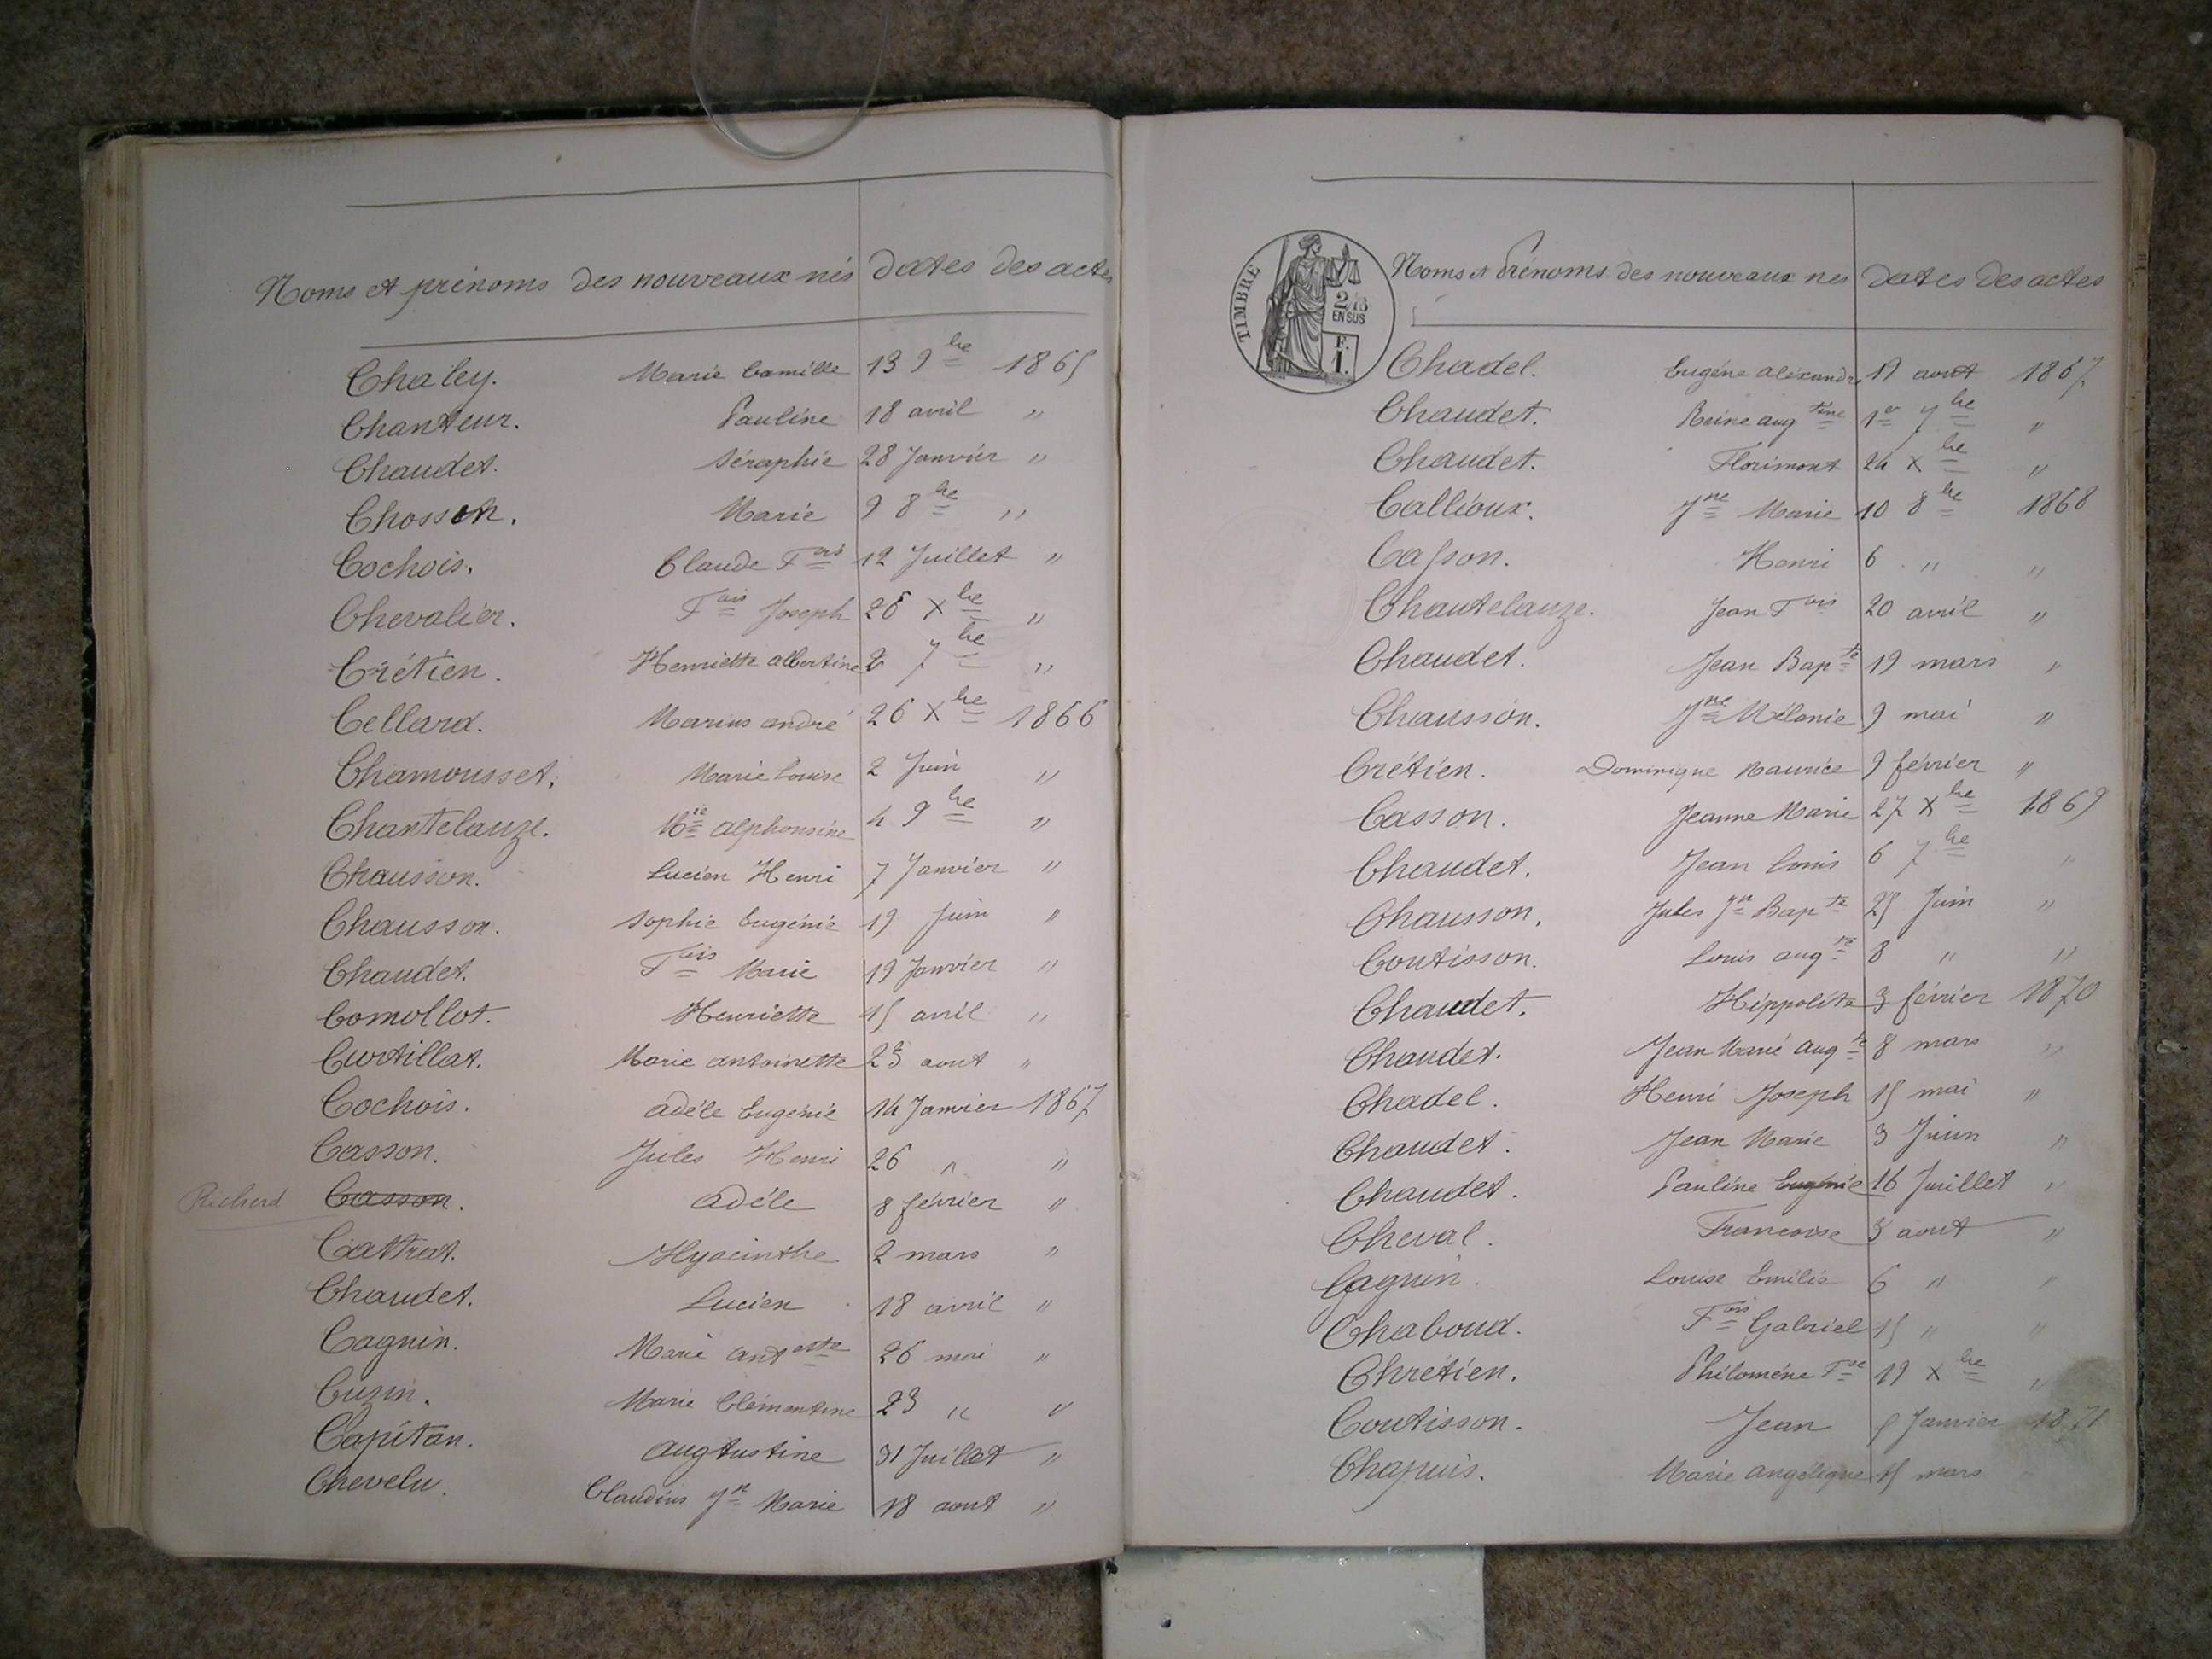 Noms et prénoms des nouveaux nés Dates des actes
Chaley. Marie Camille 13 9bre 1865
Chanteur. Pauline 18 avril "
Chaudet. Séraphie 28 Janvier "
Chosson. Marie 9 8bre "
Cochois. Claude Fois 12 Juillet "
Chevalier. Fois Joseph 26 Xbre "
Crétien. Henriette albertine 2 7bre "
Cellard. Marius andré 26 Xbre 1866
Chamousset. Marie Louise 2 Juin "
Chantelauze. Mie alphonsine 4 9bre "
Chausson. Lucien Henri 7 Janvier "
Chausson. Sophie Eugénie 19 Juin "
Chaudet. Fois Marie 19 Janvier "
Comollot. Henriette 15 avril "
Curtillat. Marie antoinette 23 aout "
Cochois. adéle Eugénie 14 Janvier 1867
Casson. Jules Henri 26 " "
Richerd Casson. adéle 8 février "
Cattrat. Hyacinthe 2 mars "
Chaudet. Lucien 18 avril "
Cagnin. Marie antette 26 mai "
Cuzin. Marie Clémentine 23 " "
Capitan. augtustine 31 Juillet "
Chevelu. Claudius Jn Marie 18 aout "
TIMBRE
2/10
EN SUS
F.
1.
Noms et Prénoms des nouveaux nés Dates des actes
Chadel. Eugéne alexandre 17 aout 1867
Chaudet. Reine augtine 1er 7bre "
Chaudet. Florimont 24 Xbre "
Callioux. Jne Marie 10 8bre 1868
Casson. Henri 6 " "
Chantelauze. Jean Fois 20 avril "
Chaudet. Jean Bapte 19 mars "
Chausson. Jne Mélanie 9 mai "
Crétien. Dominique Maurice 9 février "
Casson. Jeanne Marie 27 Xbre 1869
Chaudet. Jean Louis 6 7bre "
Chausson. Jules Jn Bapte 25 Juin "
Coutisson. Louis augte 8 " "
Chaudet. Hippolite 3 février 1870
Chaudet. Jean Marie augte 8 mars "
Chadel. Henri Joseph 15 mai "
Chaudet. Jean Marie 3 Juin "
Chaudet. Pauline Eugénie 16 Juillet "
Cheval. Francoise 3 aout "
Cagnin. Louise Emilie 6 " "
Chaboud. Fois Gabriel 15 " "
Chrétien. Philoméne Fse 19 Xbre "
Coutisson. Jean 5 Janvier 1871
Chapuis. Marie angélique 15 mars "